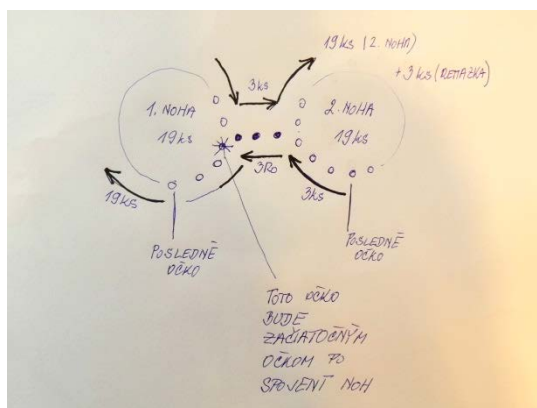 19ks (2. NOHA)
+3ks (REŤAZKA)
3ks
1. NOHA
19ks
2. NOHA
19ks
3Ro
3ks
19ks
POSLEDNÉ
OČKO
POSLEDNÉ
OČKO
TOTO OČKO
BUDE
ZAČIATOČNÝM
OČKOM PO
SPOJENÍ NOH